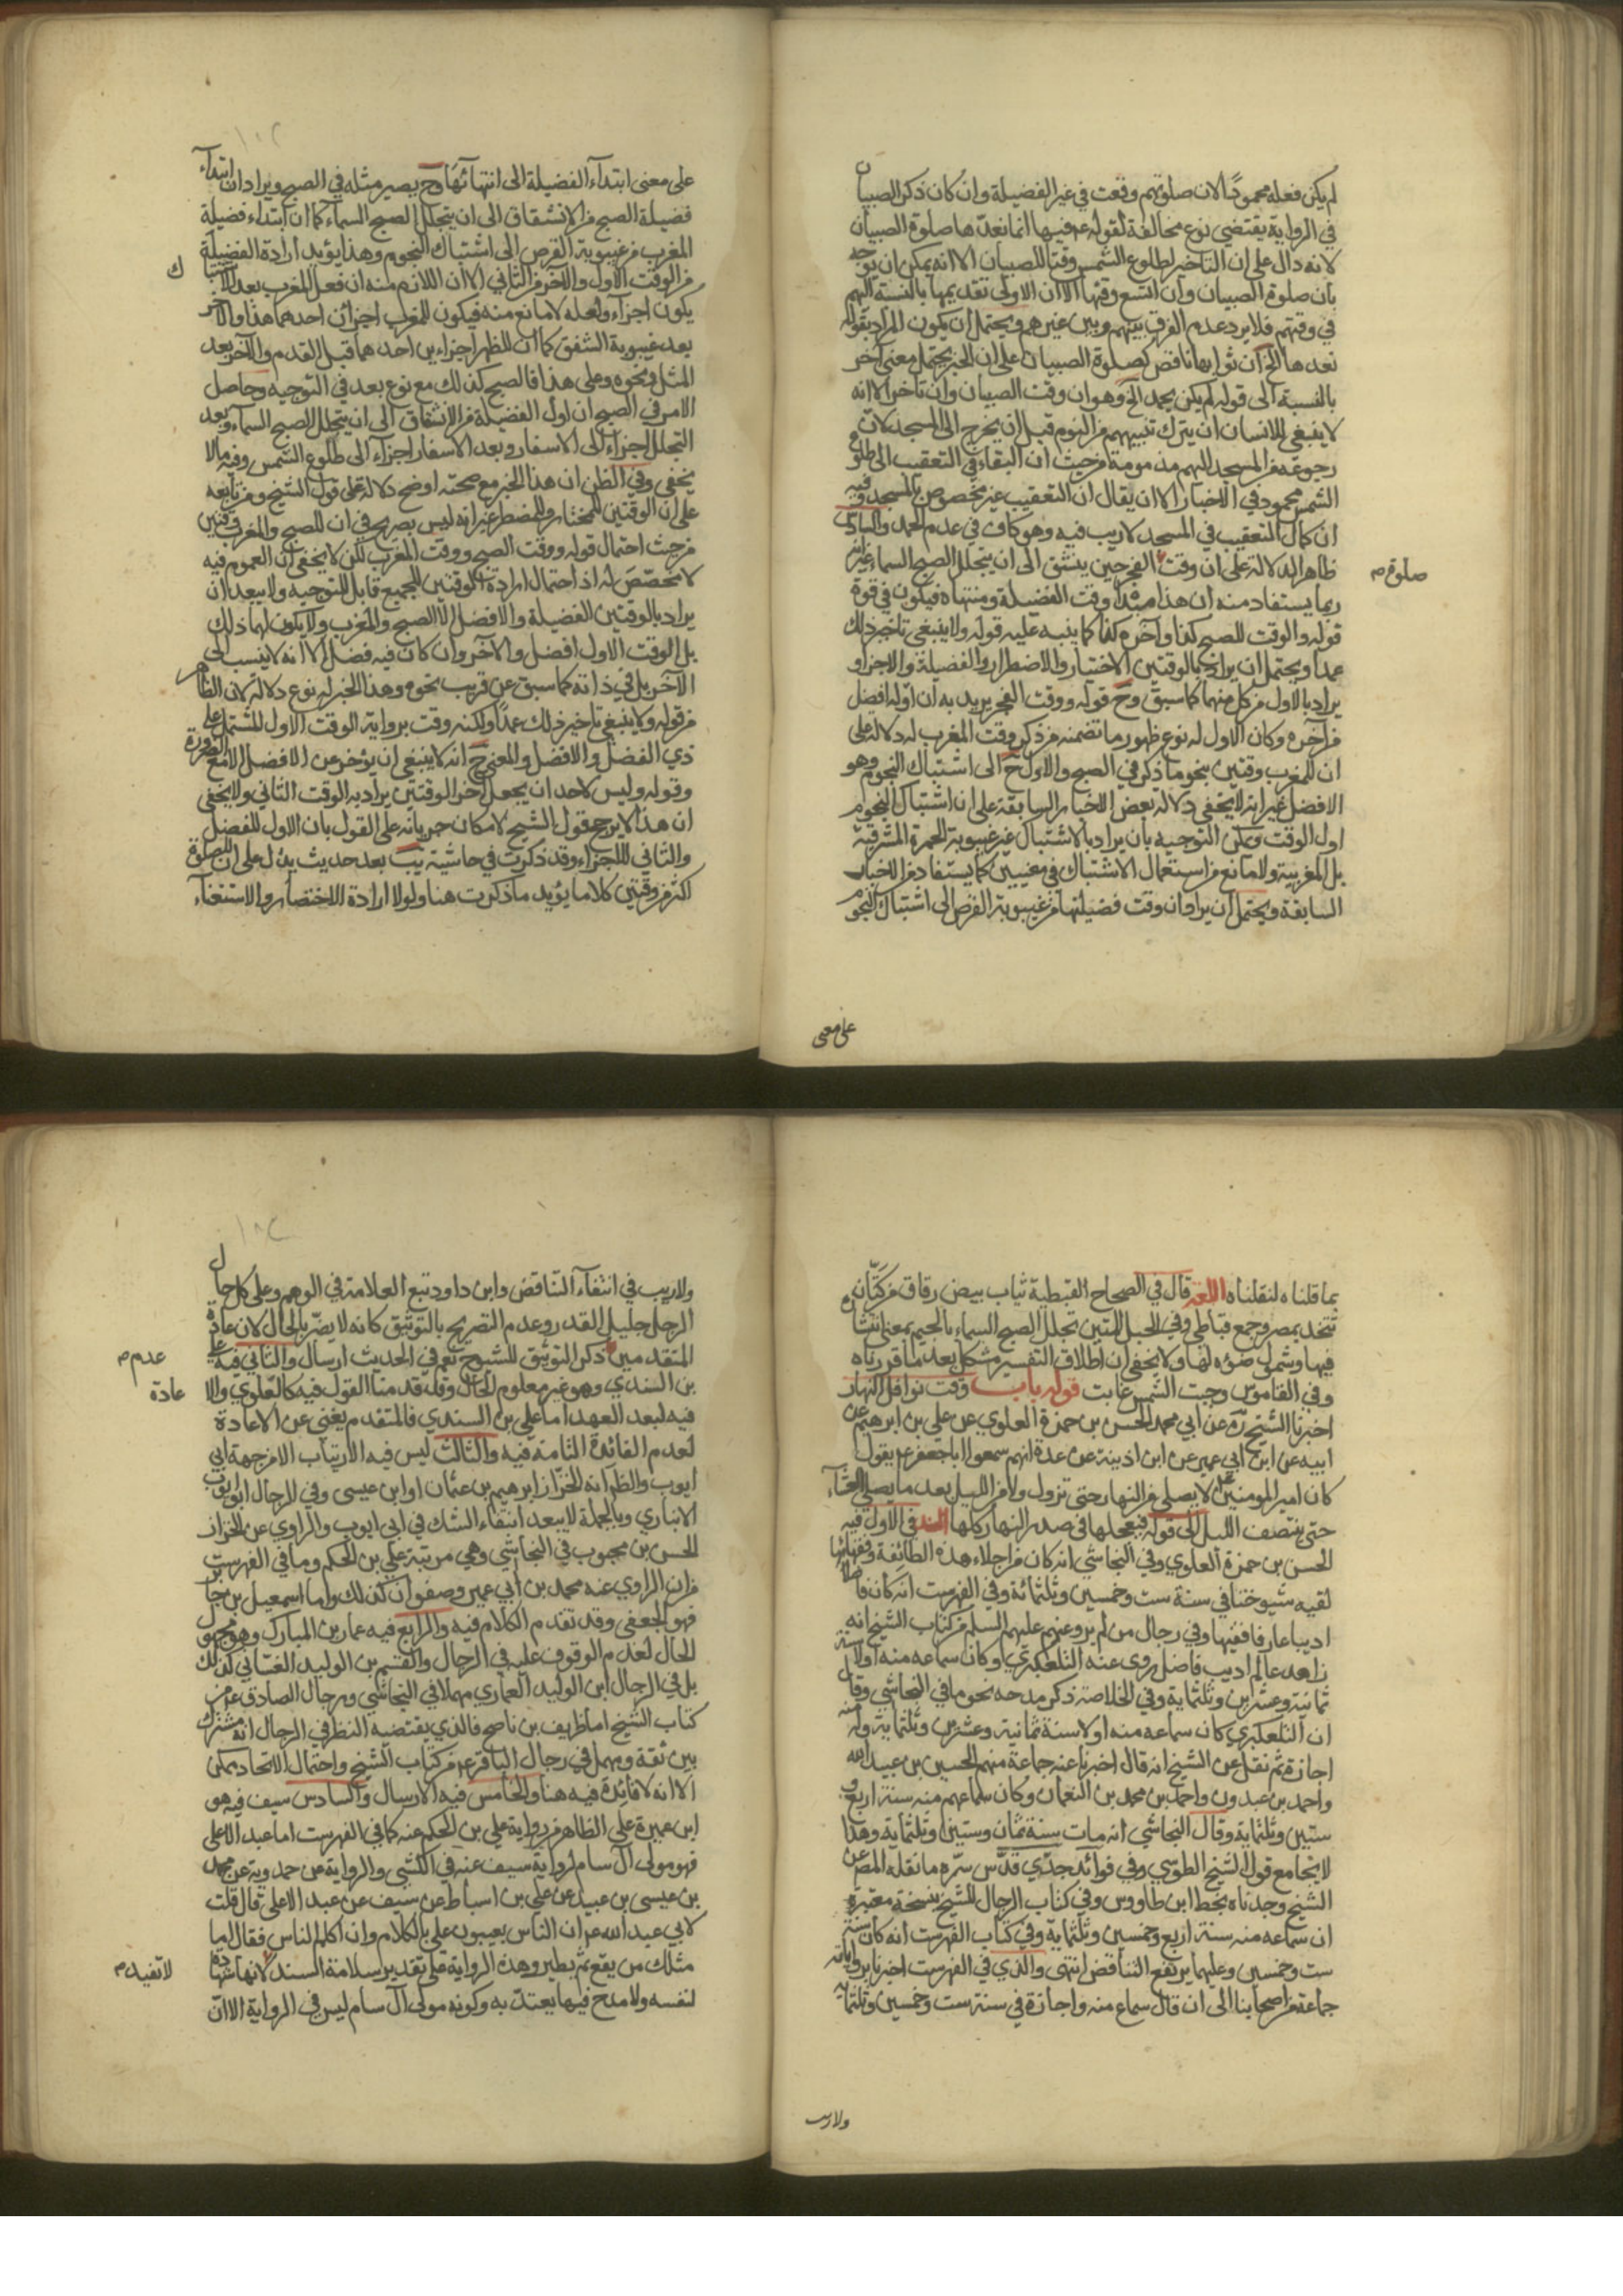 لم يكن فعله محمودًا لان صلوتهم وقعت في غير الفضيلة وان كان ذكر الصبيان
في الرواية يقتضي نوع مخالفة لقوله ع فيها انما نعدّها صلوة الصبيان
لانه دال على ان التاخير لطلوع الشمس وقتا للصبيان الا انه يمكن ان يوجه
بان صلوة الصبيان وان اتسع وقتها الا ان الاولى تقديمها بالنسبة اليهم
في وقتهم فلا يرد عدم الفرق بينهم وبين غيرهم ويحتمل ان يكون المراد بقوله
نعدها الخ ان ثوابها ناقص كصلوة الصبيان على ان الخبر يحتمل معنى آخر
بالنسبة الى قوله لم يكن يحمد الخ وهو ان وقت الصبيان وان تاخر الا انه
لا ينبغي للانسان ان يترك تنبيههم من النوم قبل ان يخرج الى المسجد لان
رجوعه من المسجد اليهم مذمومة من حيث ان البقاء في التعقيب الى طلوع
الشمس محمود في الاخبار الا ان يقال ان التعقيب غير مخصوص بالمسجد وفيه
ان كمال التعقيب في المسجد لا ريب فيه وهو كاف في عدم الحمد والسادس
ظاهر الدلالة على ان وقت الفجر حين ينشق الى ان يتجلل الصبح السماء غير انه
صلوة م
ربما يستفاد منه ان هذا مبدأ وقت الفضيلة ومنتهاه فيكون في قوة
قوله والوقت للصبح كذا وآخره كذا كما ينبه عليه قوله ولا ينبغي تاخير ذلك
عمدا ويحتمل ان يراد بالوقتين الاختيار والاضطرار والفضيلة والاجزاء
يراد بالاول من كل منهما كما سبق وح قوله ووقت الفجر يريد به ان اوله افضل
من آخره وكان الاول له نوع ظهور ما تضمنه من ذكر وقت المغرب له دلالة على
ان للمغرب وقتين بنحو ما ذكر في الصبح والاول ح الى اشتباك النجوم وهو
الافضل غير انه لا يخفى دلالة بعض الاخبار السابقة على ان اشتباك النجوم
اول الوقت ويمكن التوجيه بان يراد بالاشتباك غير غيبوبة الحمرة المشرقية
بل المغربية ولا مانع من استعمال الاشتباك في معنيين كما يستفاد من الاخبار
السابقة ويحتمل ان يراد ان وقت فضيلتها من غيبوبة القرص الى اشتباك النجوم
على معنى
على معنى ابتداء الفضيلة الى انتهائها وح يصير مثله في الصبح ويراد ان ابتداء
فضيلة الصبح من الانشقاق الى ان يتجلل الصبح السماء كما ان ابتداء فضيلة
المغرب من غيبوبة القرص الى اشتباك النجوم وهذا يؤيد ارادة الفضيلة
من الوقت الاول والآخر من الثاني الا ان اللازم منه ان فعل المغرب بعد الاشتباك
يكون اجزاء ولعله لا مانع منه فيكون للمغرب اجزائن احدهما هذا والآخر
بعد غيبوبة الشفق كما ان للظهر اجزاءين احدهما قبل القدم والآخر بعد
المثل ونحوه وعلى هذا فالصبح كذلك مع نوع بعد في التوجيه وحاصل
الامر في الصبح ان اول الفضيلة من الانشقاق الى ان يتجلل الصبح السماء وبعد
التجلل اجزاء الى الاسفار وبعد الاسفار اجزاء الى طلوع الشمس وفيه ما لا
يخفى وفي الظن ان هذا الخبر مع صحته اوضح دلالة على قول الشيخ ومن تابعه
على ان الوقتين للمختار وللمضطر غير انه ليس بصريح في ان للصبح والمغرب وقتين
من حيث احتمال قوله ووقت الصبح ووقت المغرب لكن لا يخفى ان العموم فيه
لا مخصّص له اذ احتمال ارادة الوقتين للجميع قابل للتوجيه ولا يبعد ان
يراد بالوقتين الفضيلة والافضل الا الصبح والمغرب ولا يكون لهما ذلك
بل الوقت الاول افضل والآخر وان كان فيه فضل الا انه لا ينسب الى
الآخر بل في ذاته كما سبق عن قريب نحوه وهذا الخبر له نوع دلالة لان الظاهر
من قوله ولا ينبغي تاخير ذلك عمدًا ولكنه وقت برواية الوقت الاول المشتمل على
ذي الفضل والافضل والمعنى ح انه لا ينبغي ان يؤخر عن الافضل الا مع الضرورة
وقوله وليس لاحد ان يجعل آخر الوقتين يراد به الوقت الثاني ولا يخفى
ان هذا لا يرجح قول الشيخ لامكان جريانه على القول بان الاول للفضل
والثاني للاجزاء وقد ذكرت في حاشية يب بعد حديث يدل على ان للصلوة
اكثر من وقتين كلاما يؤيد ما ذكرت هنا ولولا ارادة الاختصار والاستغناء
بما قلناه لنقلناه اللغة قال في الصحاح القبطية ثياب بيض رقاق من كتّان
تتخذ بمصر وجمع قباطي وفي الحبل المتين تجلل الصبح السماء بالجيم بمعنى انتشاره
فيها وشمول ضوئه لها ولا يخفى ان اطلاق التفسير مشكل بعد ما قررناه
وفي القاموس وجبت الشمس غابت قوله باب وقت نوافل النهار
اخبرنا الشيخ ره عن ابي محمد الحسن بن حمزة العلوي عن علي بن ابرهيم عن
ابيه عن ابن ابي عمير عن ابن اذينة عن عدة انهم سمعوا ابا جعفر ع يقول
كان امير المومنين ع لا يصلي من النهار حتى تزول ولا من الليل بعد ما يصلي العشاء
حتى ينتصف الليل الى قوله فيجعلها في صدر النهار كلها السند في الاول فيه
الحسن بن حمزة العلوي وفي النجاشي انه كان من اجلاء هذه الطائفة وفقهائها
لقيه شيوخنا في سنة ست وخمسين وثلثمائة وفي الفهرست انه كان فاضلا
اديبا عارفا فقيها وفي رجال من لم يرو عنهم عليهم السلم من كتاب الشيخ انه
زاهد عالم اديب فاضل روى عنه التلعكبري وكان سماعه منه اولا سنة
ثمانية وعشرين وثلثماية وفي الخلاصة ذكر مدحه نحو ما في النجاشي وقال
ان التلعكبري كان سماعه منه اولا سنة ثمانية وعشرين وثلثماية وله منه
اجازة ثم نقل عن الشيخ انه قال اخبرنا عنه جماعة منهم الحسين بن عبيد الله
واحمد بن عبدون واحمد بن محمد بن النعمان وكان سماعهم منه سنة اربع و
ستين وثلثماية وقال النجاشي انه مات سنة ثمان وستين وثلثماية وهذا
لا يجامع قول الشيخ الطوسي وفي فوائد جدّي قدّس سرّه ما نقله المص عن
الشيخ وجدناه بخط ابن طاووس وفي كتاب الرجال للشيخ بنسخة معتبرة
ان سماعه منه سنة اربع وخمسين وثلثماية وفي كتاب الفهرست انه كان سنة
ست وخمسين وعليهما يرتفع التناقض انتهى والذي في الفهرست اخبرنا برواياته
جماعة من اصحابنا الى ان قال سماع منه واجازة في سنة ست وخمسين وثلثماية
ولا ريب
ولا ريب في انتفاء التناقض وابن داود تبع العلامة في الوهم وعلى كل حال
الرجل جليل القدر وعدم التصريح بالتوثيق كانه لا يضرّ بالحال لان عادة
المتقدمين ذكر التوثيق للشيوخ نعم في الحديث ارسال والثاني فيه علي
عدم م
بن السندي وهو غير معلوم الحال وقد قدمنا القول فيه كالعلوي والا
عادة
فيه لبعد العهد اما علي بن السندي فالمتقدم يغني عن الاعادة
لعدم الفائدة التامة فيه والثالث ليس فيه الارتياب الا من جهة ابي
ايوب والظ انه الخزاز ابرهيم بن عثمان او ابن عيسى وفي الرجال ابو ايوب
الانباري وبالجملة لا يبعد انتفاء الشك في ابي ايوب والراوي عن الخزاز
الحسن بن محبوب في النجاشي وهي مرتبة علي بن الحكم وما في الفهرست
من ان الراوي عنه محمد بن ابي عمير وصفوان كذلك واما اسمعيل بن جابر
فهو الجعفي وقد تقدم الكلام فيه والرابع فيه عمار بن المبارك وهو مجهول
الحال لعدم الوقوف عليه في الرجال والقسم بن الوليد الغسّاني كذلك
بل في الرجال ابن الوليد العماري مهملا في النجاشي ورجال الصادق ع من
كتاب الشيخ اما ظريف بن ناصح فالذي يقتضيه النظر في الرجال انه مشترك
بين ثقة ومهمل في رجال الباقر ع من كتاب الشيخ واحتمال الاتحاد ممكن
الا انه لا فائدة فيه هنا والخامس فيه الارسال والسادس سيف فيه هو
ابن عميرة على الظاهر من رواية علي بن الحكم عنه كما في الفهرست اما عبد الاعلى
فهو مولى آل سام لرواية سيف عنه في الكشي والرواية عن حمدويه عن محمد
بن عيسى بن عبيد عن علي بن اسباط عن سيف عن عبد الاعلى قال قلت
لابي عبد الله ع ان الناس يعيبون علي بالكلام وان اكلم الناس فقال اما
مثلك من يقع ثم يطير وهذه الرواية على تقدير سلامة السند لانها شهادة
لا تفيد م
لنفسه ولا مدح فيها يعتدّ به وكونه مولى آل سام ليس في الرواية الا ان